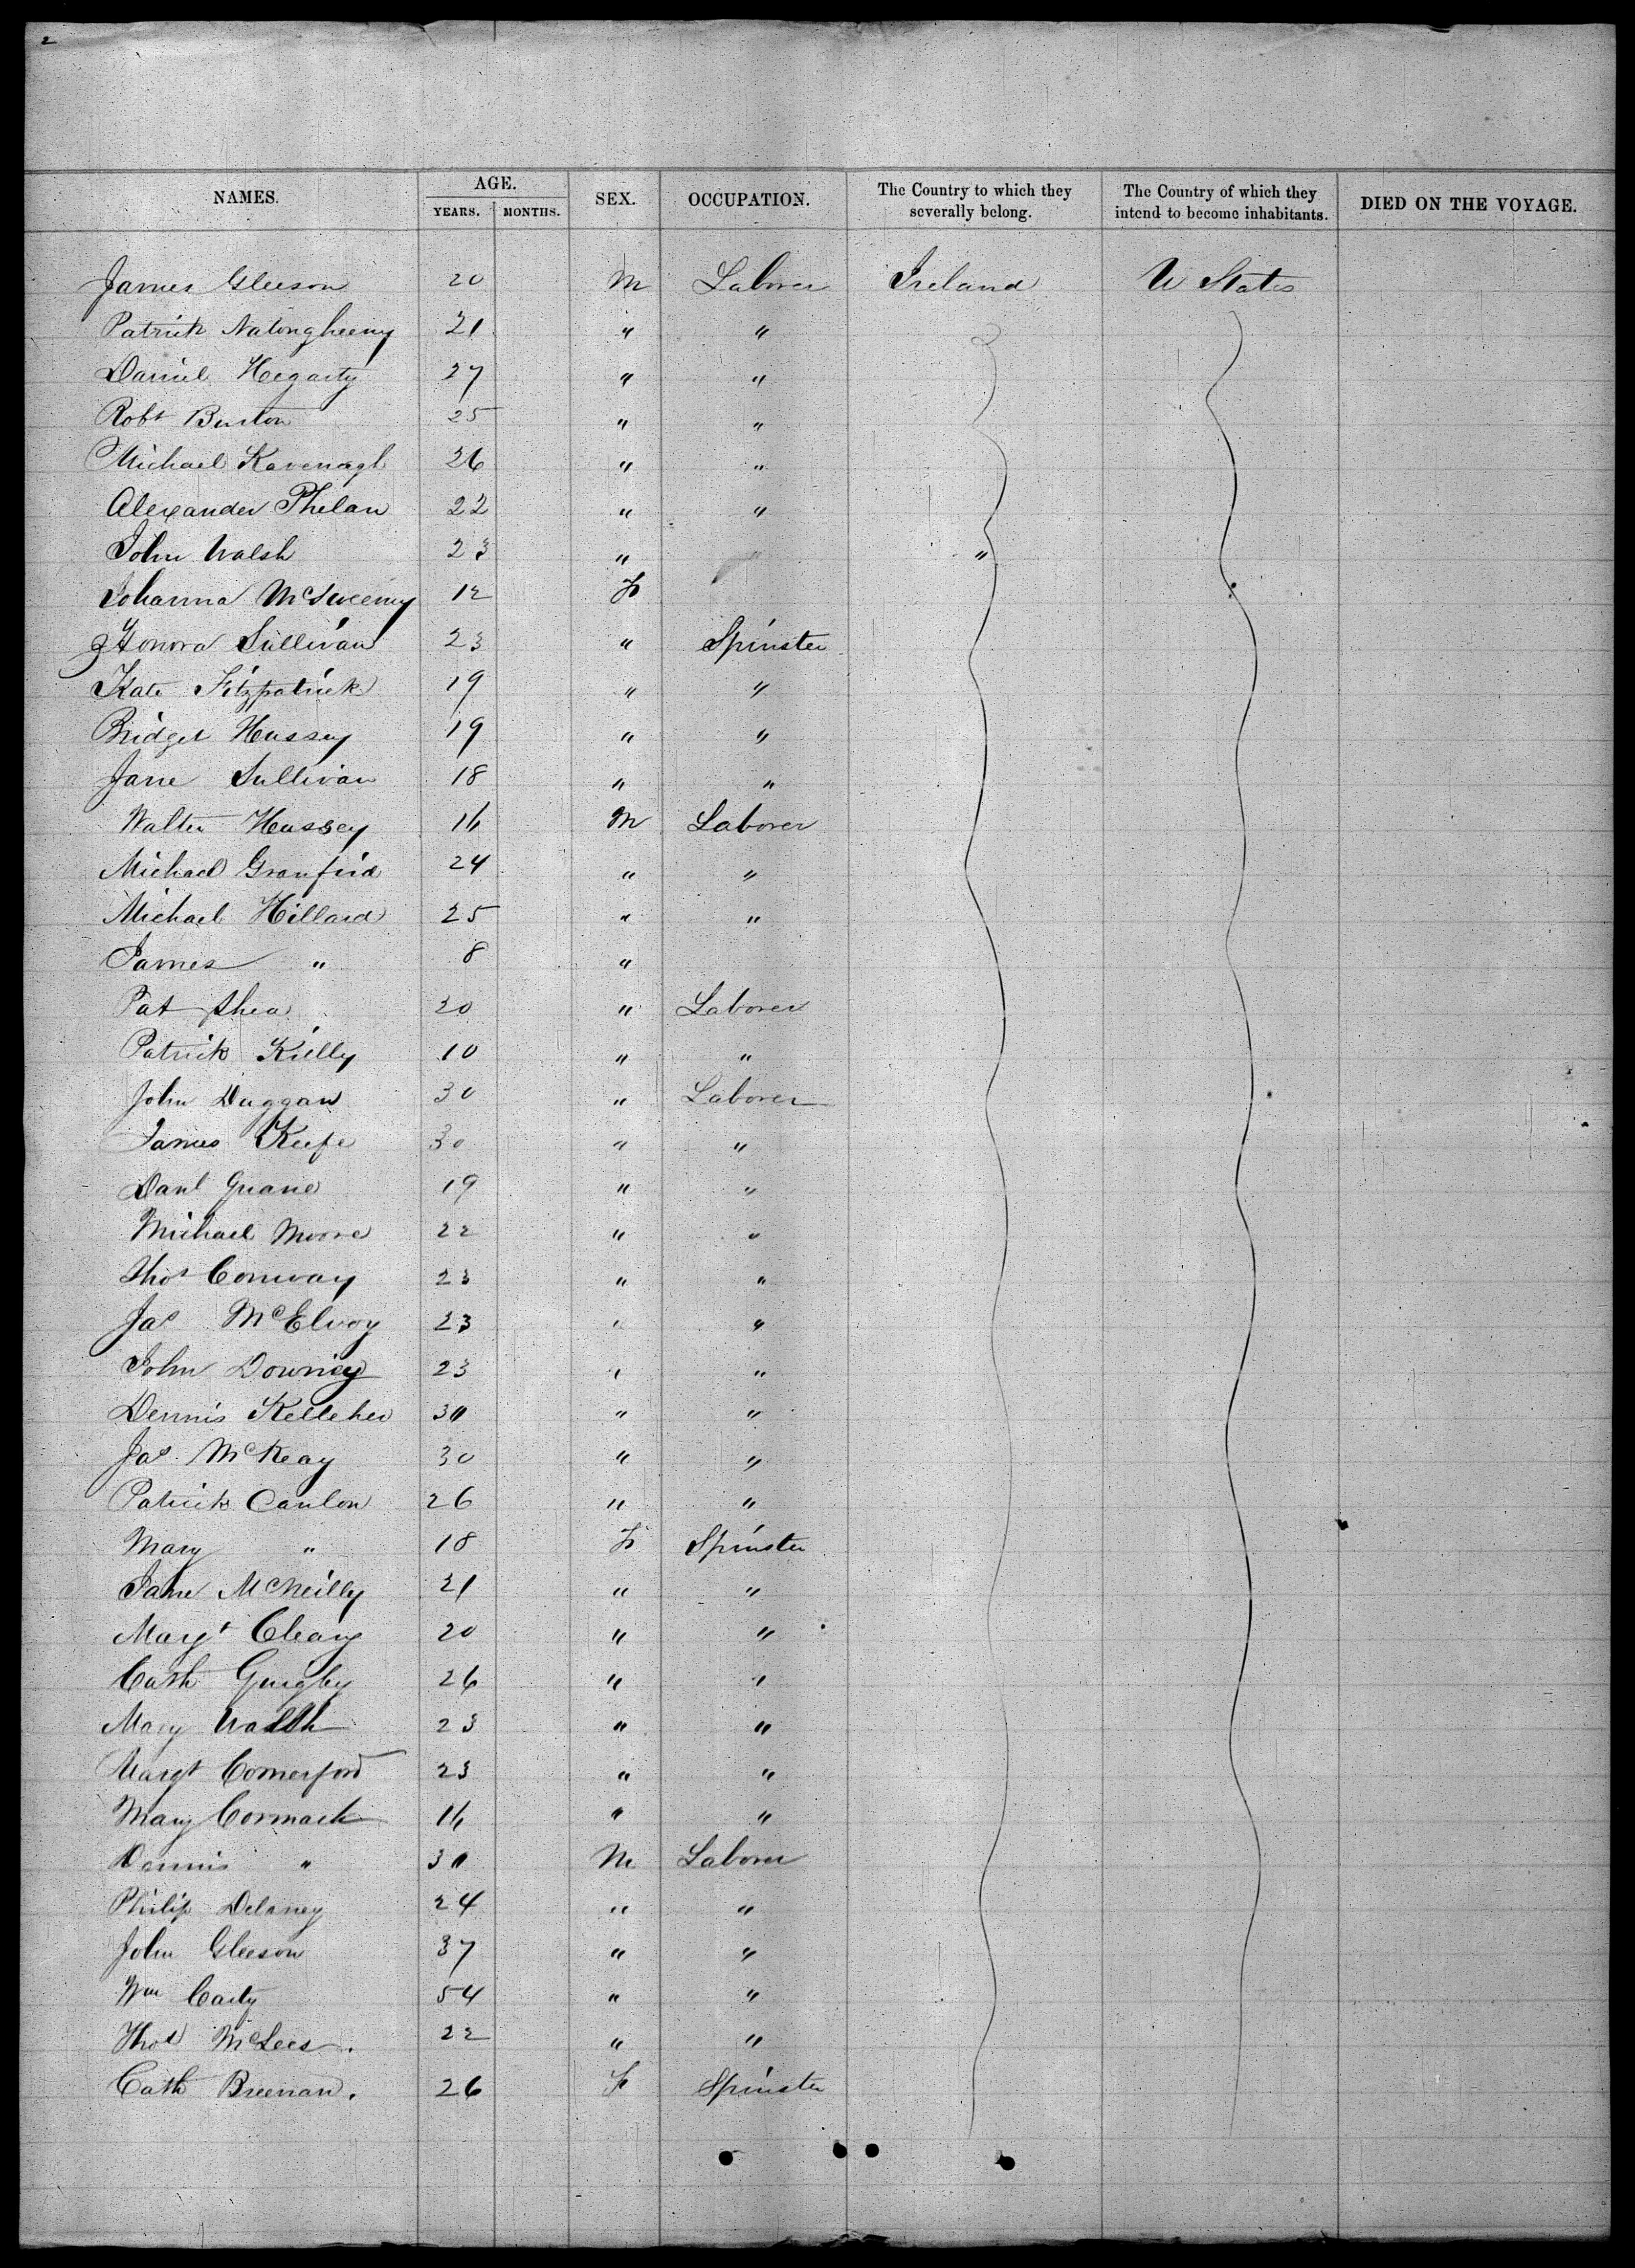 2
NAMES. AGE. YEARS. MONTHS. SEX. OCCUPATION. The Country to which they severally belong. The Country of which they intend to become inhabitants. DIED ON THE VOYAGE.
James Gleeson 20 M Laborer Ireland U States
Patrick 21 " "
Daniel Hegarty 27 " "
Robt Burton 25 " "
Michael Kavenagh 26 " "
Alexander Phelan 22 " "
John Walsh 23 " " "
Johanna McSweeny 12 F
Honora Sullivan 23 " Spinster
Kate Fitzpatrick 19 " "
Bridget Hussey 19 " "
Jane Sullivan 18 " "
Walter Hussey 16 M Laborer
Michael 24 " "
Michael Hillard 25 " "
James " 8 "
Pat Shea 20 " Laborer
Patrick Kielly 10 " "
John Duggan 30 " Laborer
James Keefe 30 " "
Danl Guane 19 " "
Michael Moore 22 " "
Thos Conway 23 " "
Jas McElvoy 23 " "
John Downey 23 " "
Dennis Kelleher 30 " "
Jas McKeay 30 " "
Patrick Canlon 26 " "
Mary " 18 F Spinster
Jane McNeilly 21 " "
Margt Cleary 20 " "
Cath Guigby 26 " "
Mary Walsh 23 " "
Margt Comerford 23 " "
Mary Cormack 16 " "
Dennis " 30 M Laborer
Philip Delaney 24 " "
John Gleeson 37 " "
Wm Carty 54 " "
Thos McLees. 22 " "
Cath Breenan. 26 F Spinster